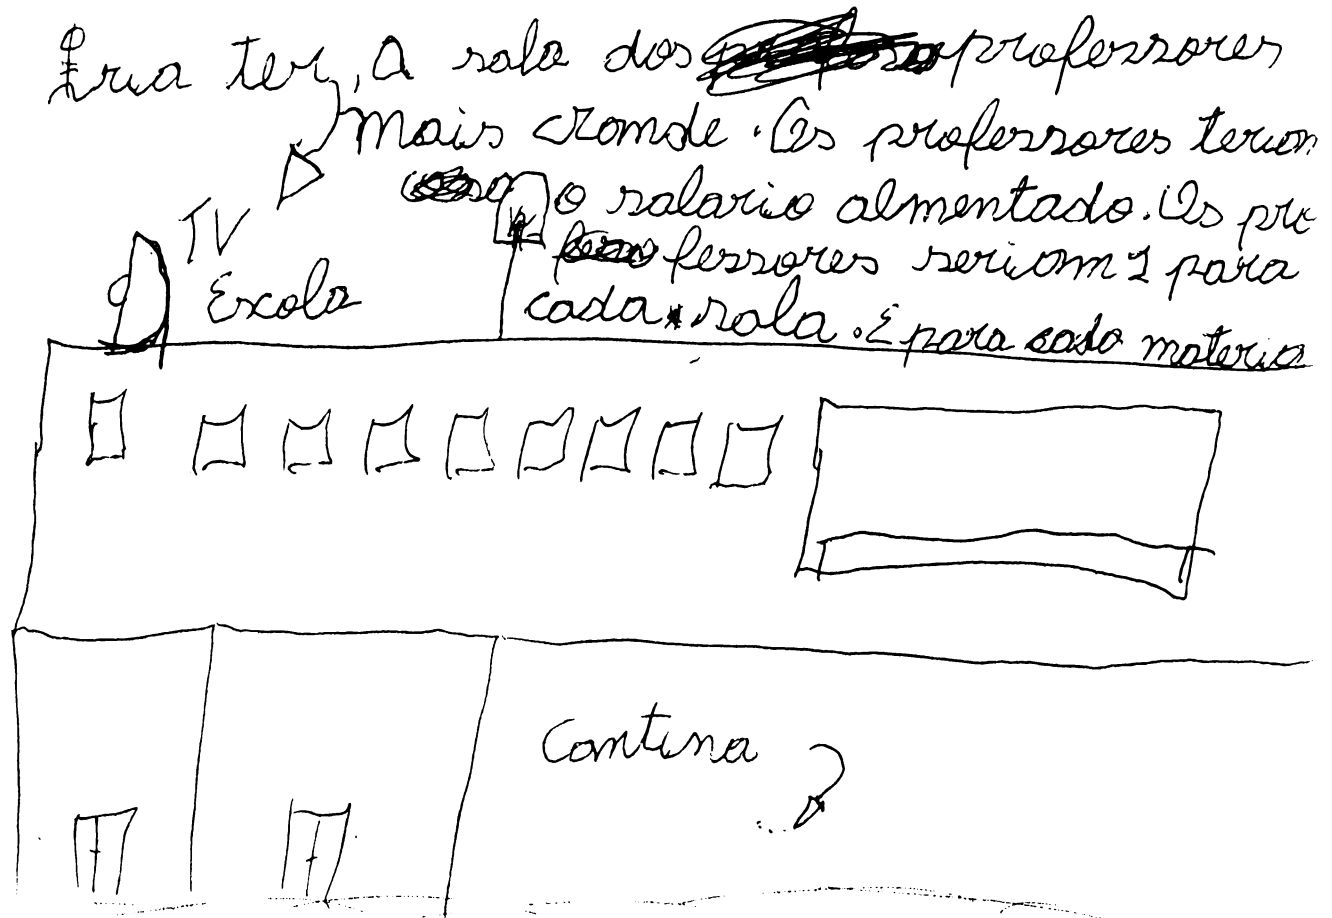 Iria ter, A sala dos professores
Mais cromde. Os professores teriom
o salario almentado. Os pro
fessores seriom 1 para
cada sala. E para cada materia
TV
Escola
Cantina